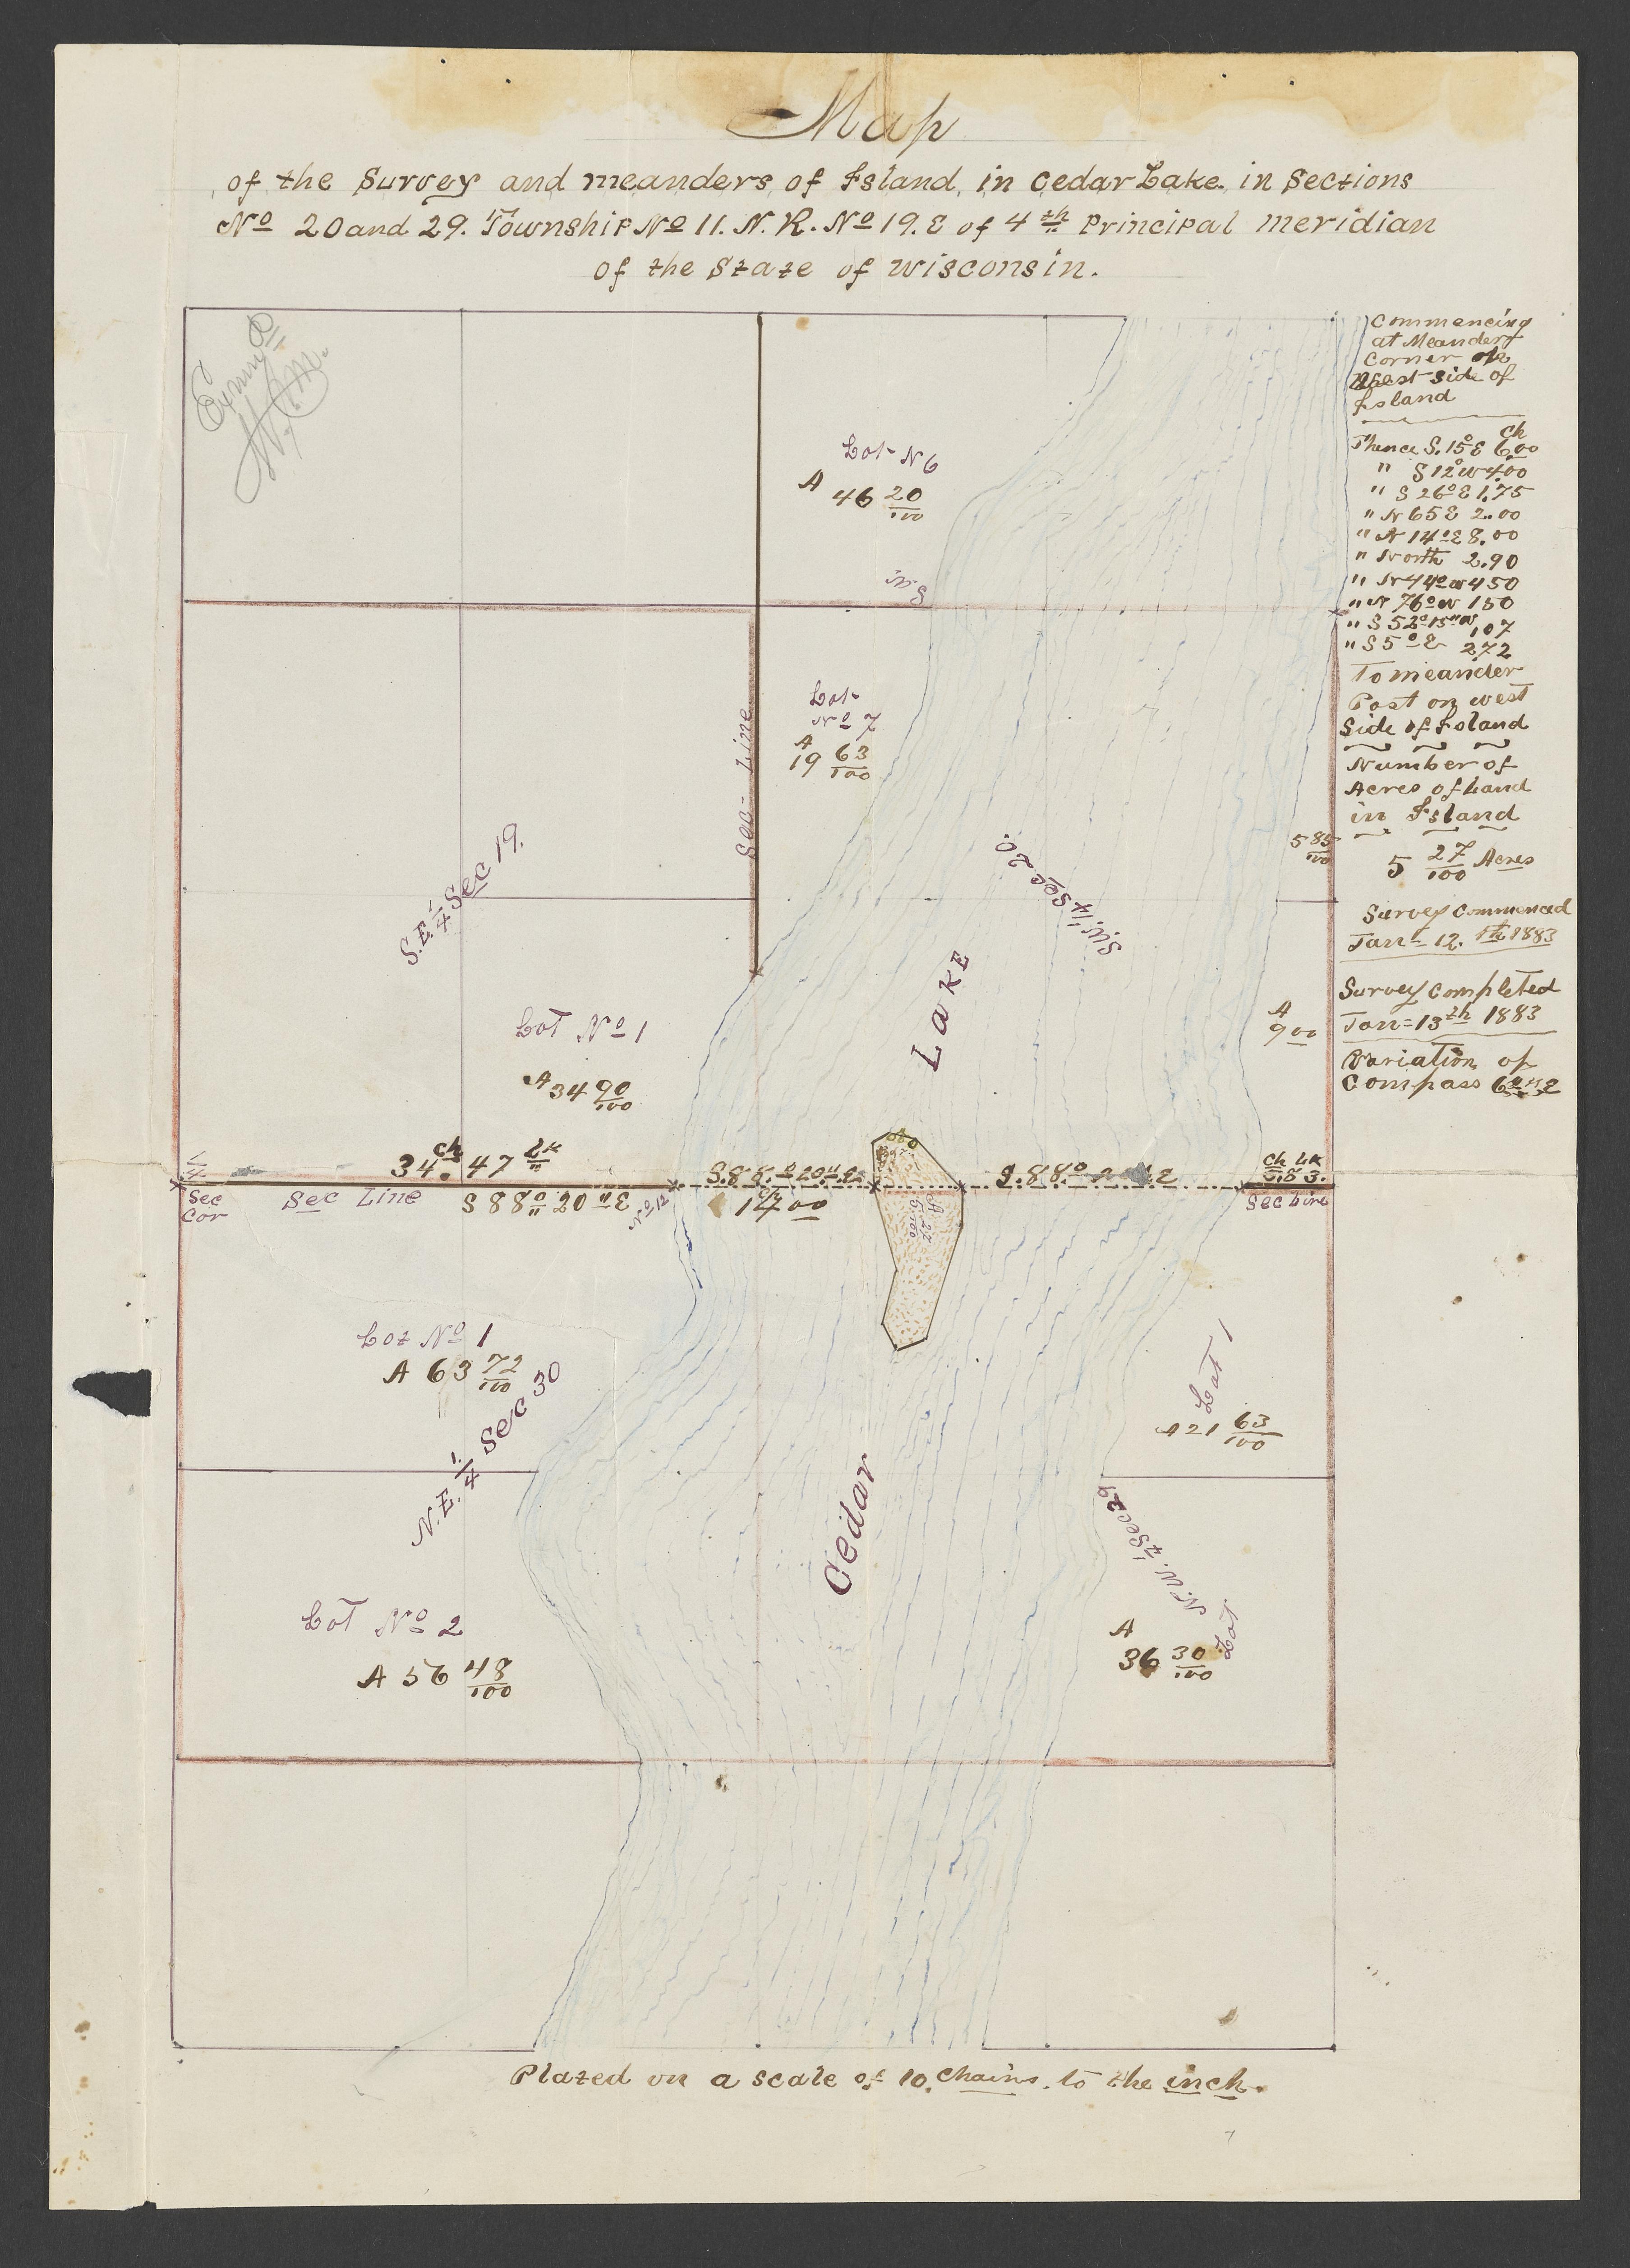 Map
of the Survey and meanders of Island, in Cedar Lake. in Sections
No 20 and 29. Township No 11. N. R. No 19. E of 4th Principal meridian
of the State of Wisconsin.
Commencing
at Meander
Corner
side of
Island
Ch
Thence S. 15° E 6.00
" S 12° W 4.00
" S 26° E 1.75
" N 65 E 2.00
" N 14° E 8.00
" North 2.90
" N 44° W 4 50
" N 76° W 1 50
" S 52° 15" W 1 07
" S 5° E 2 72
To meander
Post on west
Side of Island
Number of
Acres of Land
in Island
5 27/100 Acres
Survey Commenced
Jan 12. th 1883
Survey Completed
Jan = 13th 1883
Variation of
Compass
Lot N 6
A 46 20/100
S.W.
Lot
No 7
A
19 63/100
Sec - Line
S.E. 1/4 Sec 19.
S.W. 1/4 Sec 20.
5 85/100
LAKE
Lot No 1
A 34 90/100
A
9 00
34 ch. 47 Lk
1/4
Sec
Cor
Sec Line S 88° 20" E
No 12
S. 88.° 20." E
14 00
S. 88°
Ch Lk
5.8 3.
Sec Line
Lot No 1
A 63 72/100
N.E. 1/4 Sec 30
Lot 1
A 21 63/100
Cedar
N.W. 1/4 Sec 29
Lot No 2
A 56 48/100
Lot
A
36 30/100
Plated on a scale of 10. Chains. to the inch.